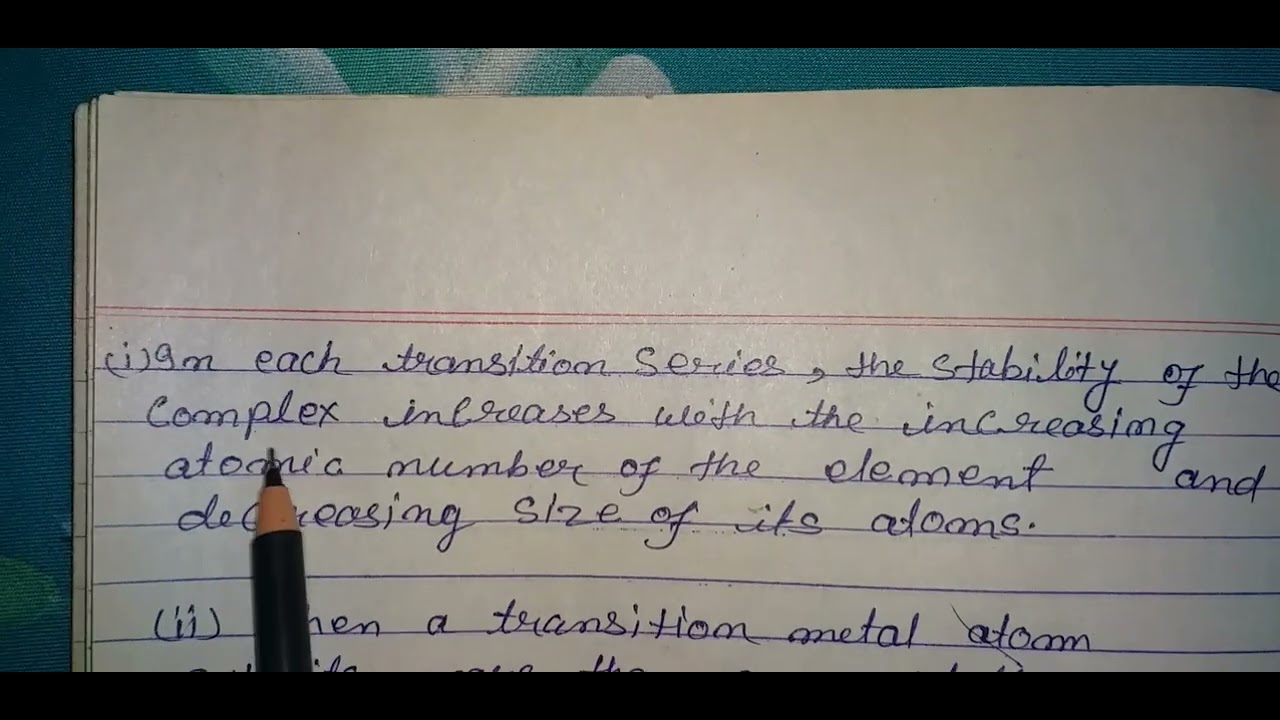 (i) In each transition series, the stability of the
complex increases with the increasing
atomic number of the element and
decreasing size of its atoms.
(ii) When a transition metal atom